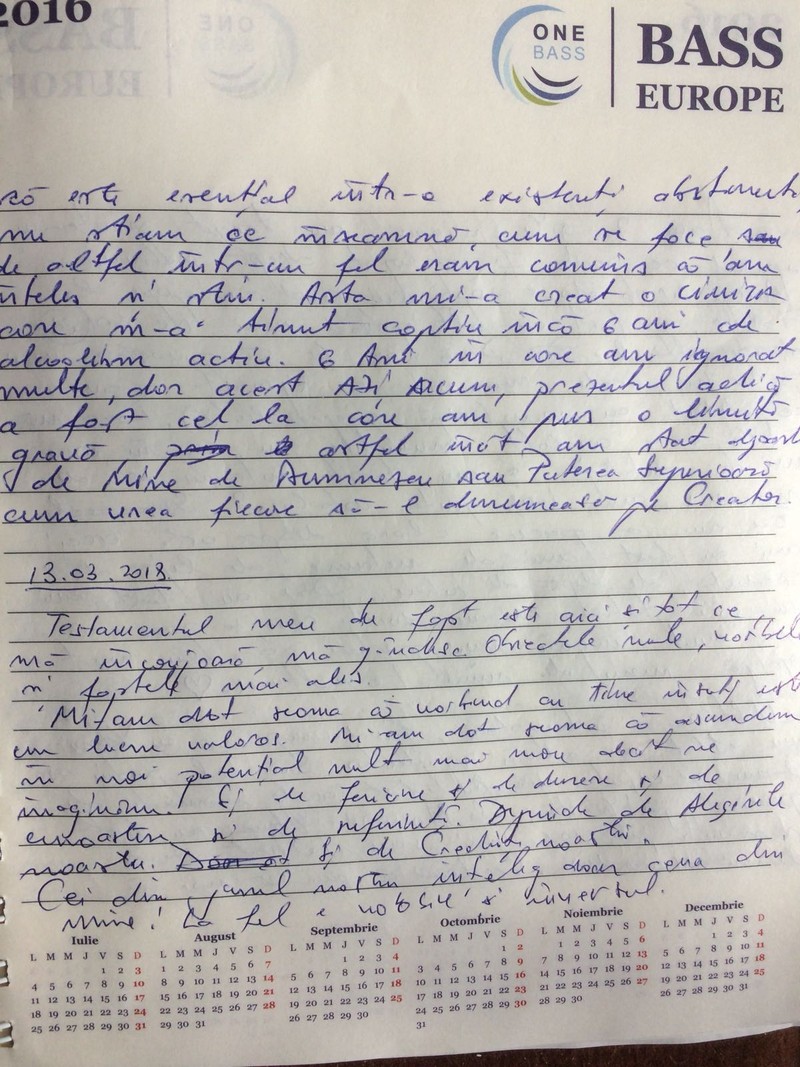 2016
ONE
BASS
BASS
EUROPE
că este esențial într-o existență
nu știam ce înseamnă, cum se face
de altfel într-un fel eram convins că am
înteles si știu. Asta mi-a creat o
care m-a ținut captiv încă 6 ani de
alcoolism activ. 6 Ani în care am ignorat
multe, dar acest AZI Acum, prezentul adică
a fost cel la care am pus o limită
gravă astfel incât am stat
de Mine de Dumnezeu sau Puterea Superioară
cum vrea fiecare să-l denumească pe Creator.
13.03.2018
Testamentul meu de fapt este aici si tot ce
mă inconjoară, mă gândesc. Obiectele mele, vorbele
si faptele mai ales.
Mi-am dat seama că vorbind cu tine insuti este
un lucru valoros. Mi-am dat seama că ascundem
in noi potențial mult mai mare decât ne
imaginăm! Si de fericire si de durere si de
si de neputință. Depinde de Alegerile
noastre. Si de Credința noastră.
Cei din jurul nostru inteleg doar ceva din
mine! La fel e si universul.
Iulie
L M M J V S D
1 2 3
4 5 6 7 8 9 10
11 12 13 14 15 16 17
18 19 20 21 22 23 24
25 26 27 28 29 30 31
August
L M M J V S D
1 2 3 4 5 6 7
8 9 10 11 12 13 14
15 16 17 18 19 20 21
22 23 24 25 26 27 28
29 30 31
Septembrie
L M M J V S D
1 2 3 4
5 6 7 8 9 10 11
12 13 14 15 16 17 18
19 20 21 22 23 24 25
26 27 28 29 30
Octombrie
L M M J V S D
1 2
3 4 5 6 7 8 9
10 11 12 13 14 15 16
17 18 19 20 21 22 23
24 25 26 27 28 29 30
31
Noiembrie
L M M J V S D
1 2 3 4 5 6
7 8 9 10 11 12 13
14 15 16 17 18 19 20
21 22 23 24 25 26 27
28 29 30
Decembrie
L M M J V S D
1 2 3 4
5 6 7 8 9 10 11
12 13 14 15 16 17 18
19 20 21 22 23 24 25
26 27 28 29 30 31